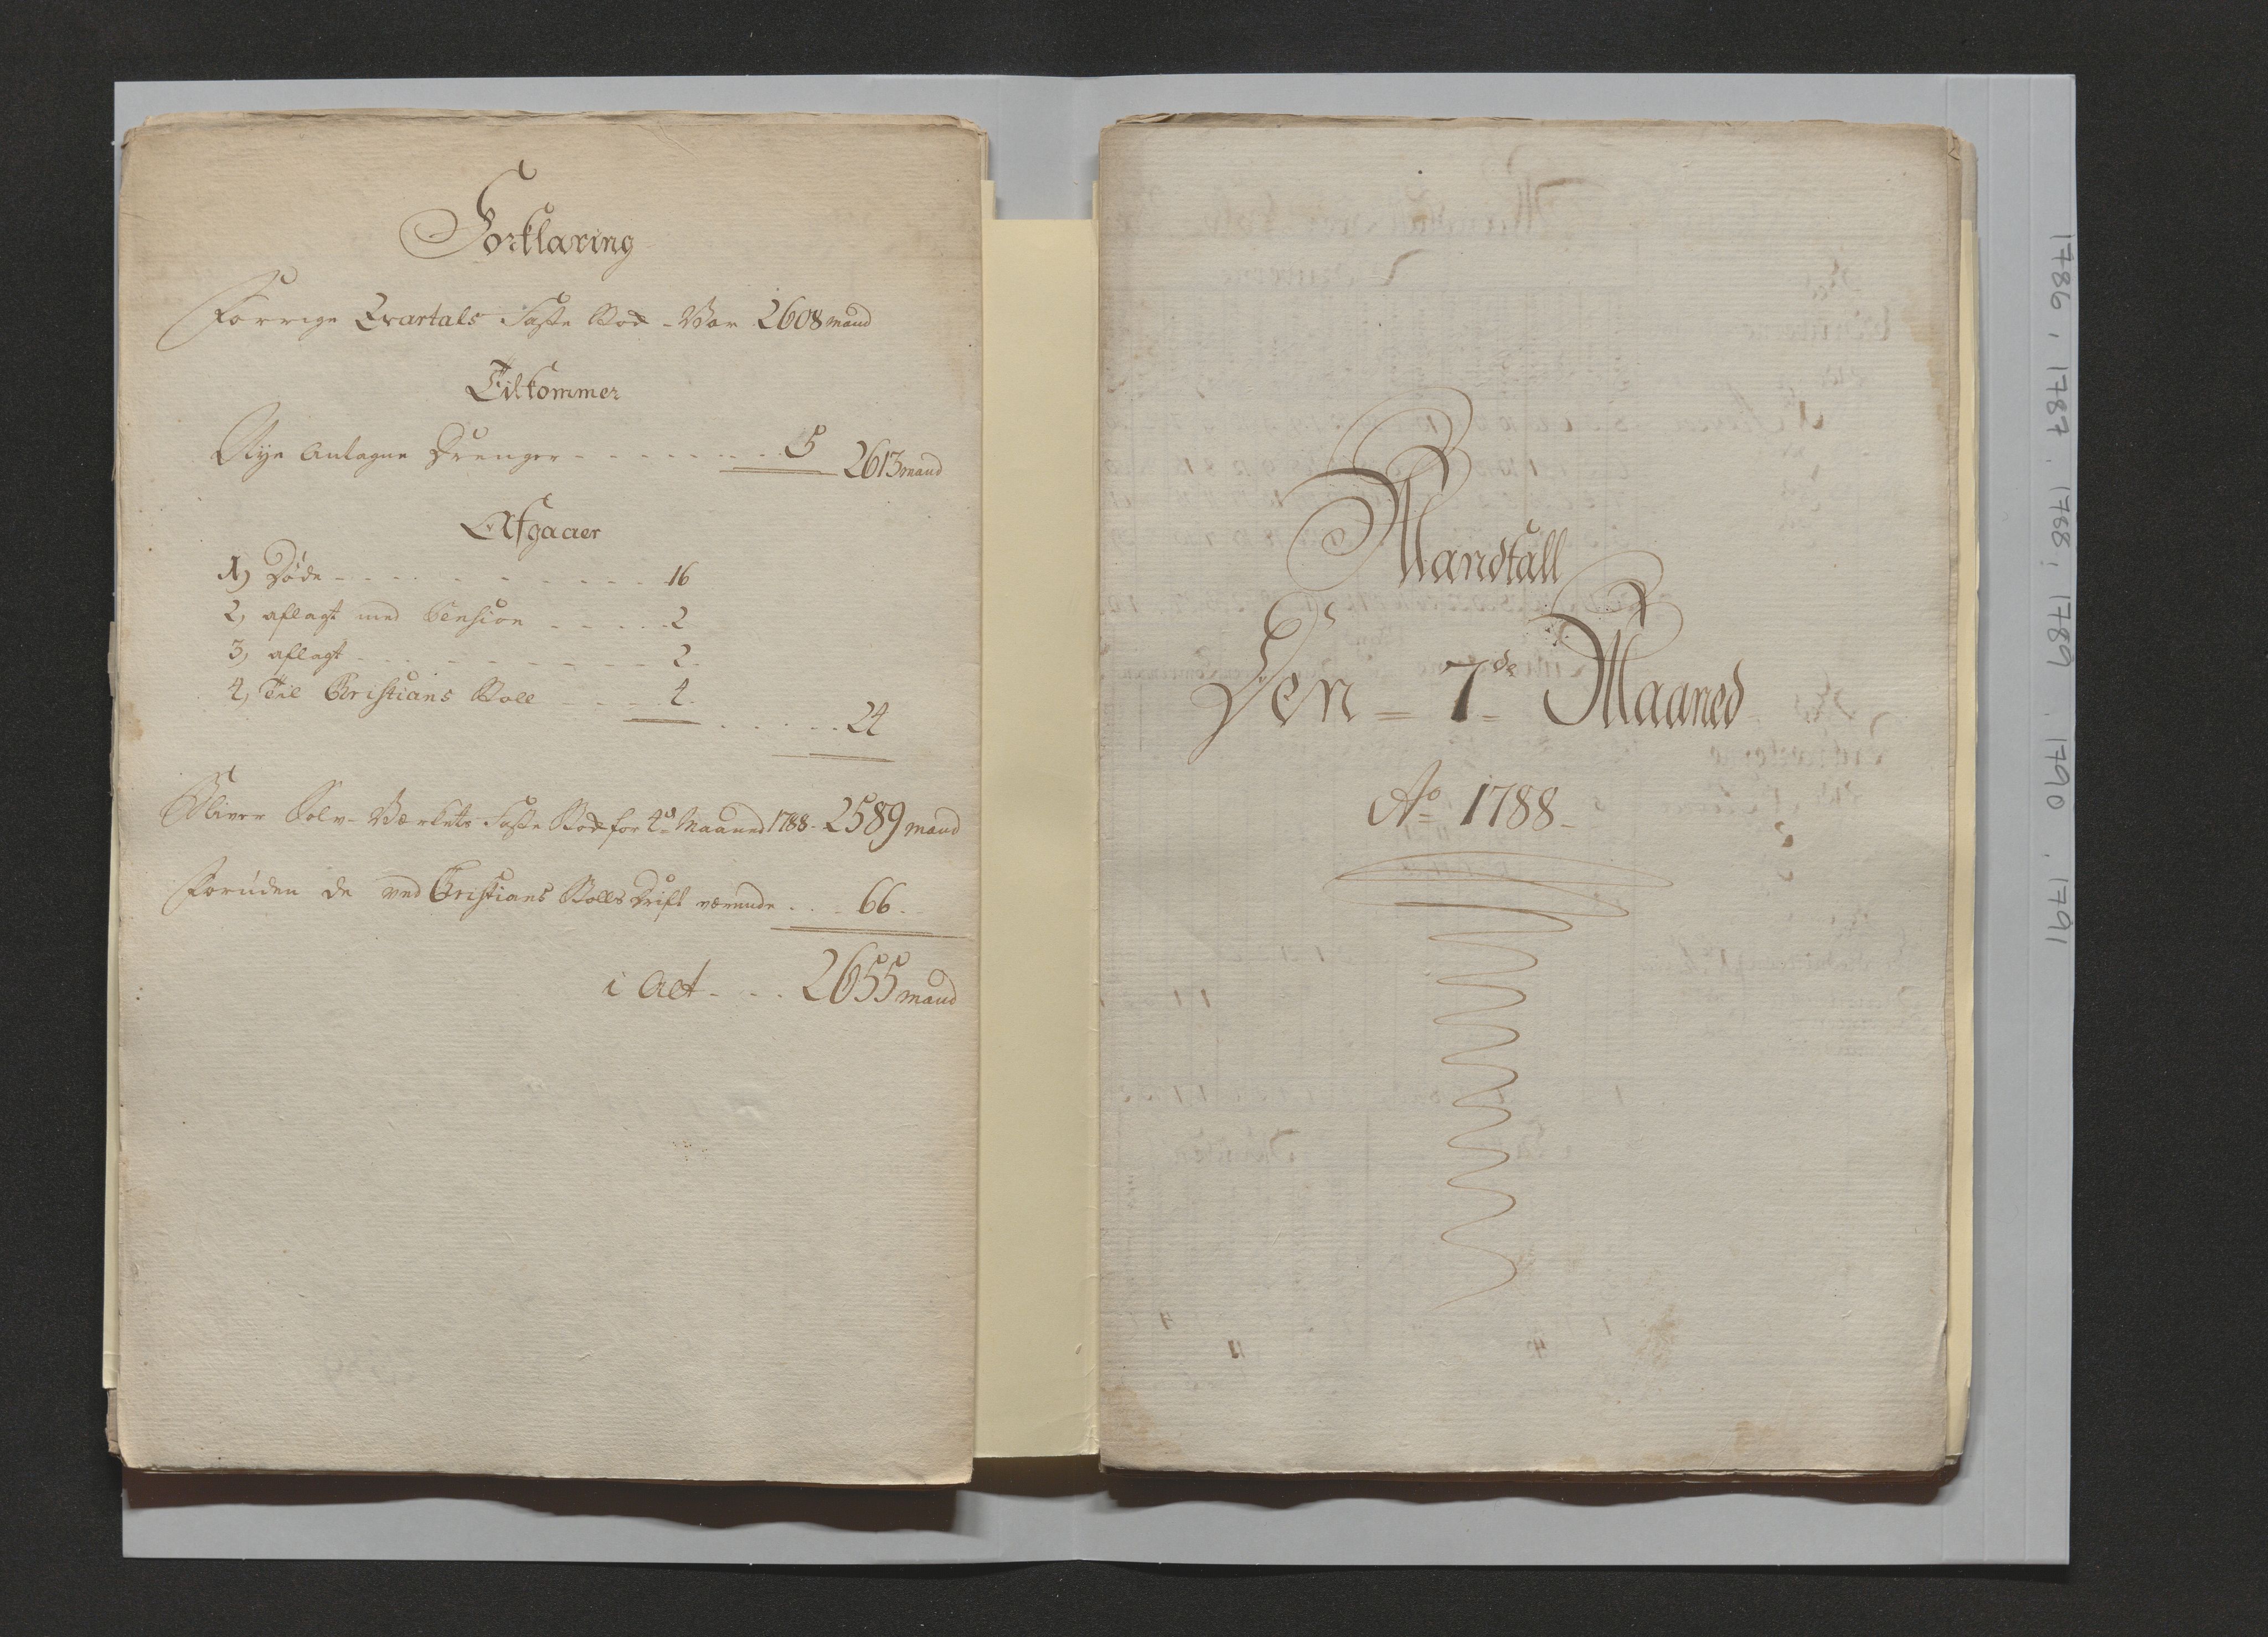 Forklaring
Forrige Qvartals Faste Rod - Var 2608 mand
Tilkommer
Nye Antagne Drenger - - - - - - - - 5 2613 mand
Afgaaer
1) Døde - - - - - - - - - - - 16
2, aflagt med Pension - - - - - 2
3, aflagt - - - - - - - - - - 2
4, Til Christians Kold - - - - 4
- - - - - 24
Bliver Sølv-Værkets Faste Rod for 4de Maaned 1788 - 2589 mand
Foruden de ved Christians Kolds Drift værende - - - 66
i Alt - - - 2655 mand
Mandtall
Den = 7de = Maaned
Ao 1788 -
1786, 1787. 1788, 1789. 1790. 1791